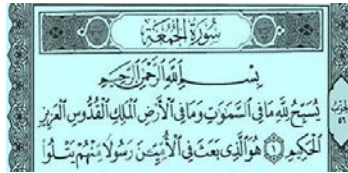 سُورَةُ الْجُمُعَةِ
بِسْمِ اللَّهِ الرَّحْمَٰنِ الرَّحِيمِ
يُسَبِّحُ لِلَّهِ مَا فِي السَّمَٰوَٰتِ وَمَا فِي الْأَرْضِ الْمَلِكِ الْقُدُّوسِ الْعَزِيزِ
الْحَكِيمِ ١ هُوَ الَّذِي بَعَثَ فِي الْأُمِّيِّـۧنَ رَسُولًا مِّنْهُمْ يَتْلُوا